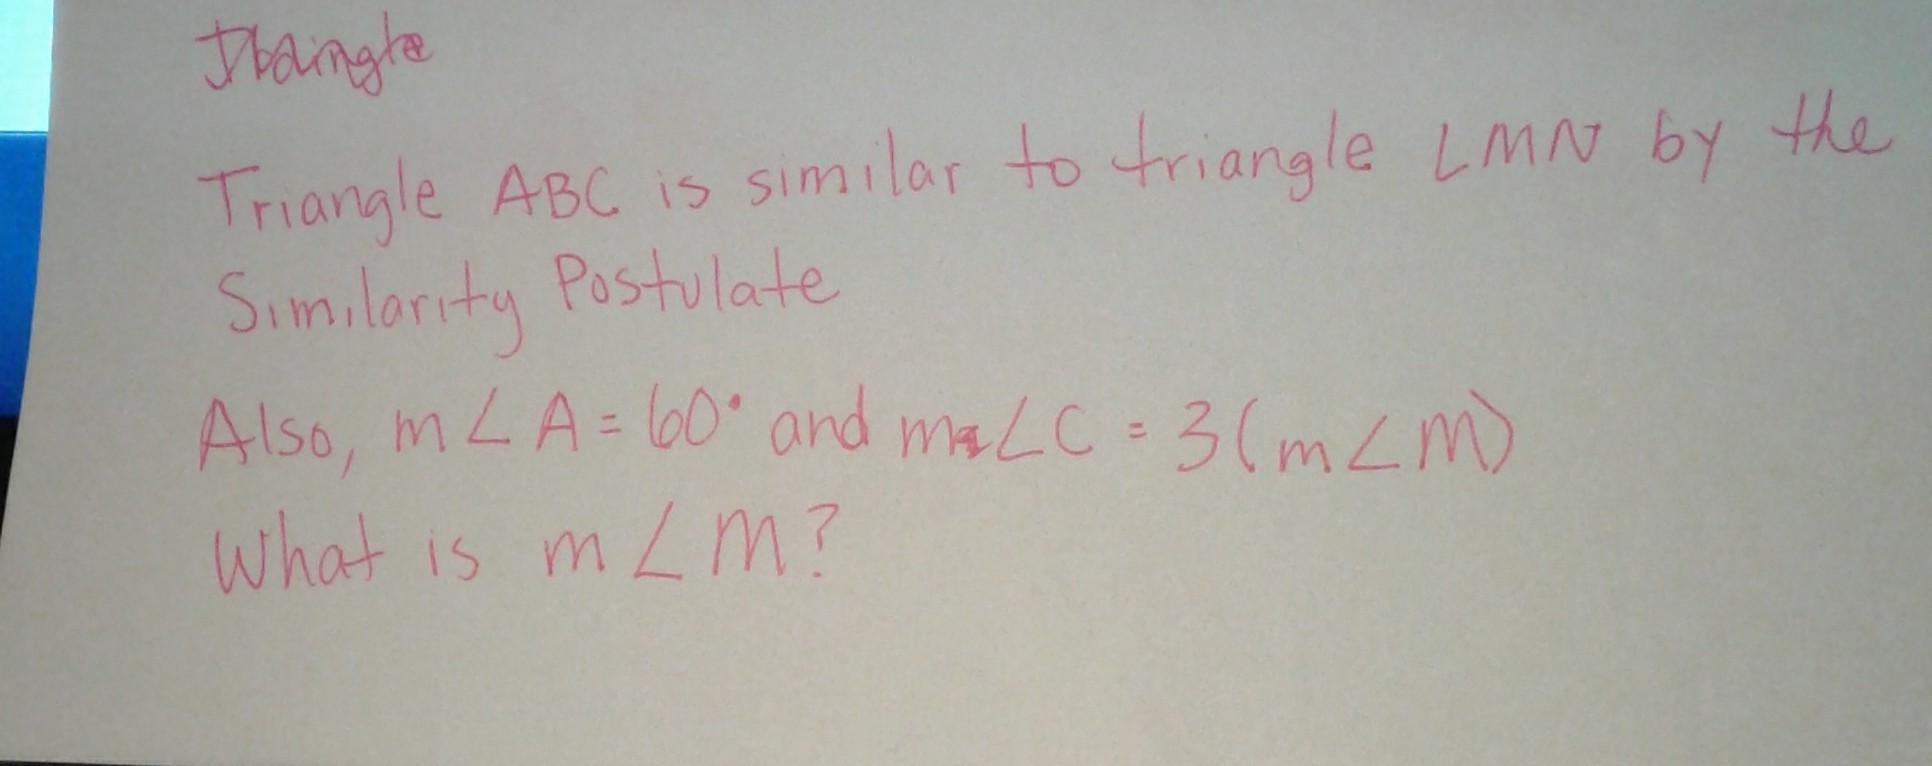 Triangle ABC is similar to triangle LMN by the
Similarity Postulate
Also, m∠A = 60° and m∠C = 3(m∠M)
What is m∠M?